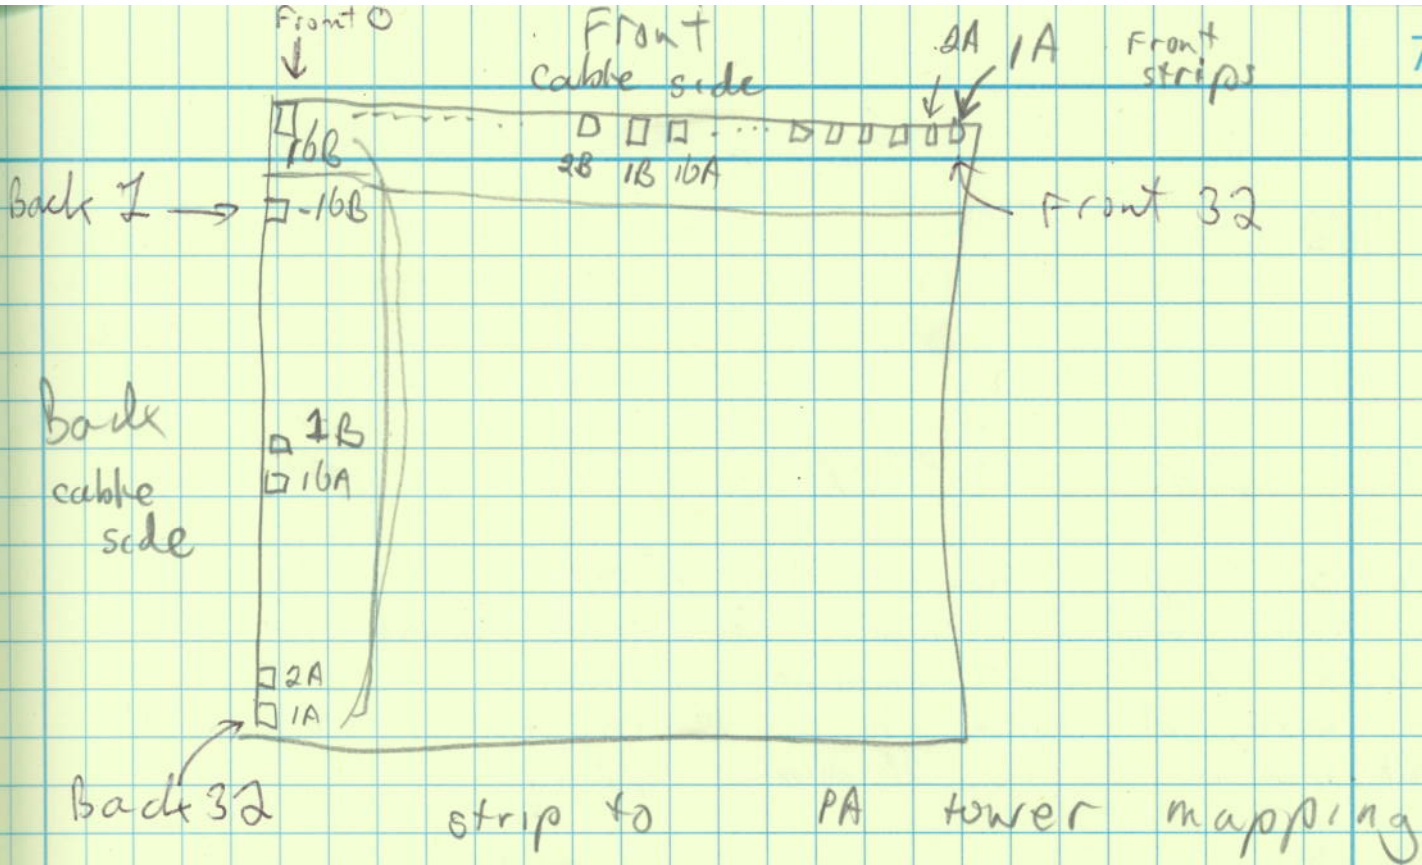 Front 0
Front
cable side
2A
1A
Front
strips
7
16B
2B
1B
16A
Back 1
-16B
Front 32
Back
cable
side
1B
16A
2A
1A
Back 32
strip to PA tower mapping